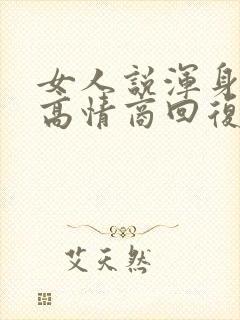 女人説渾身
高情商回復
艾天然